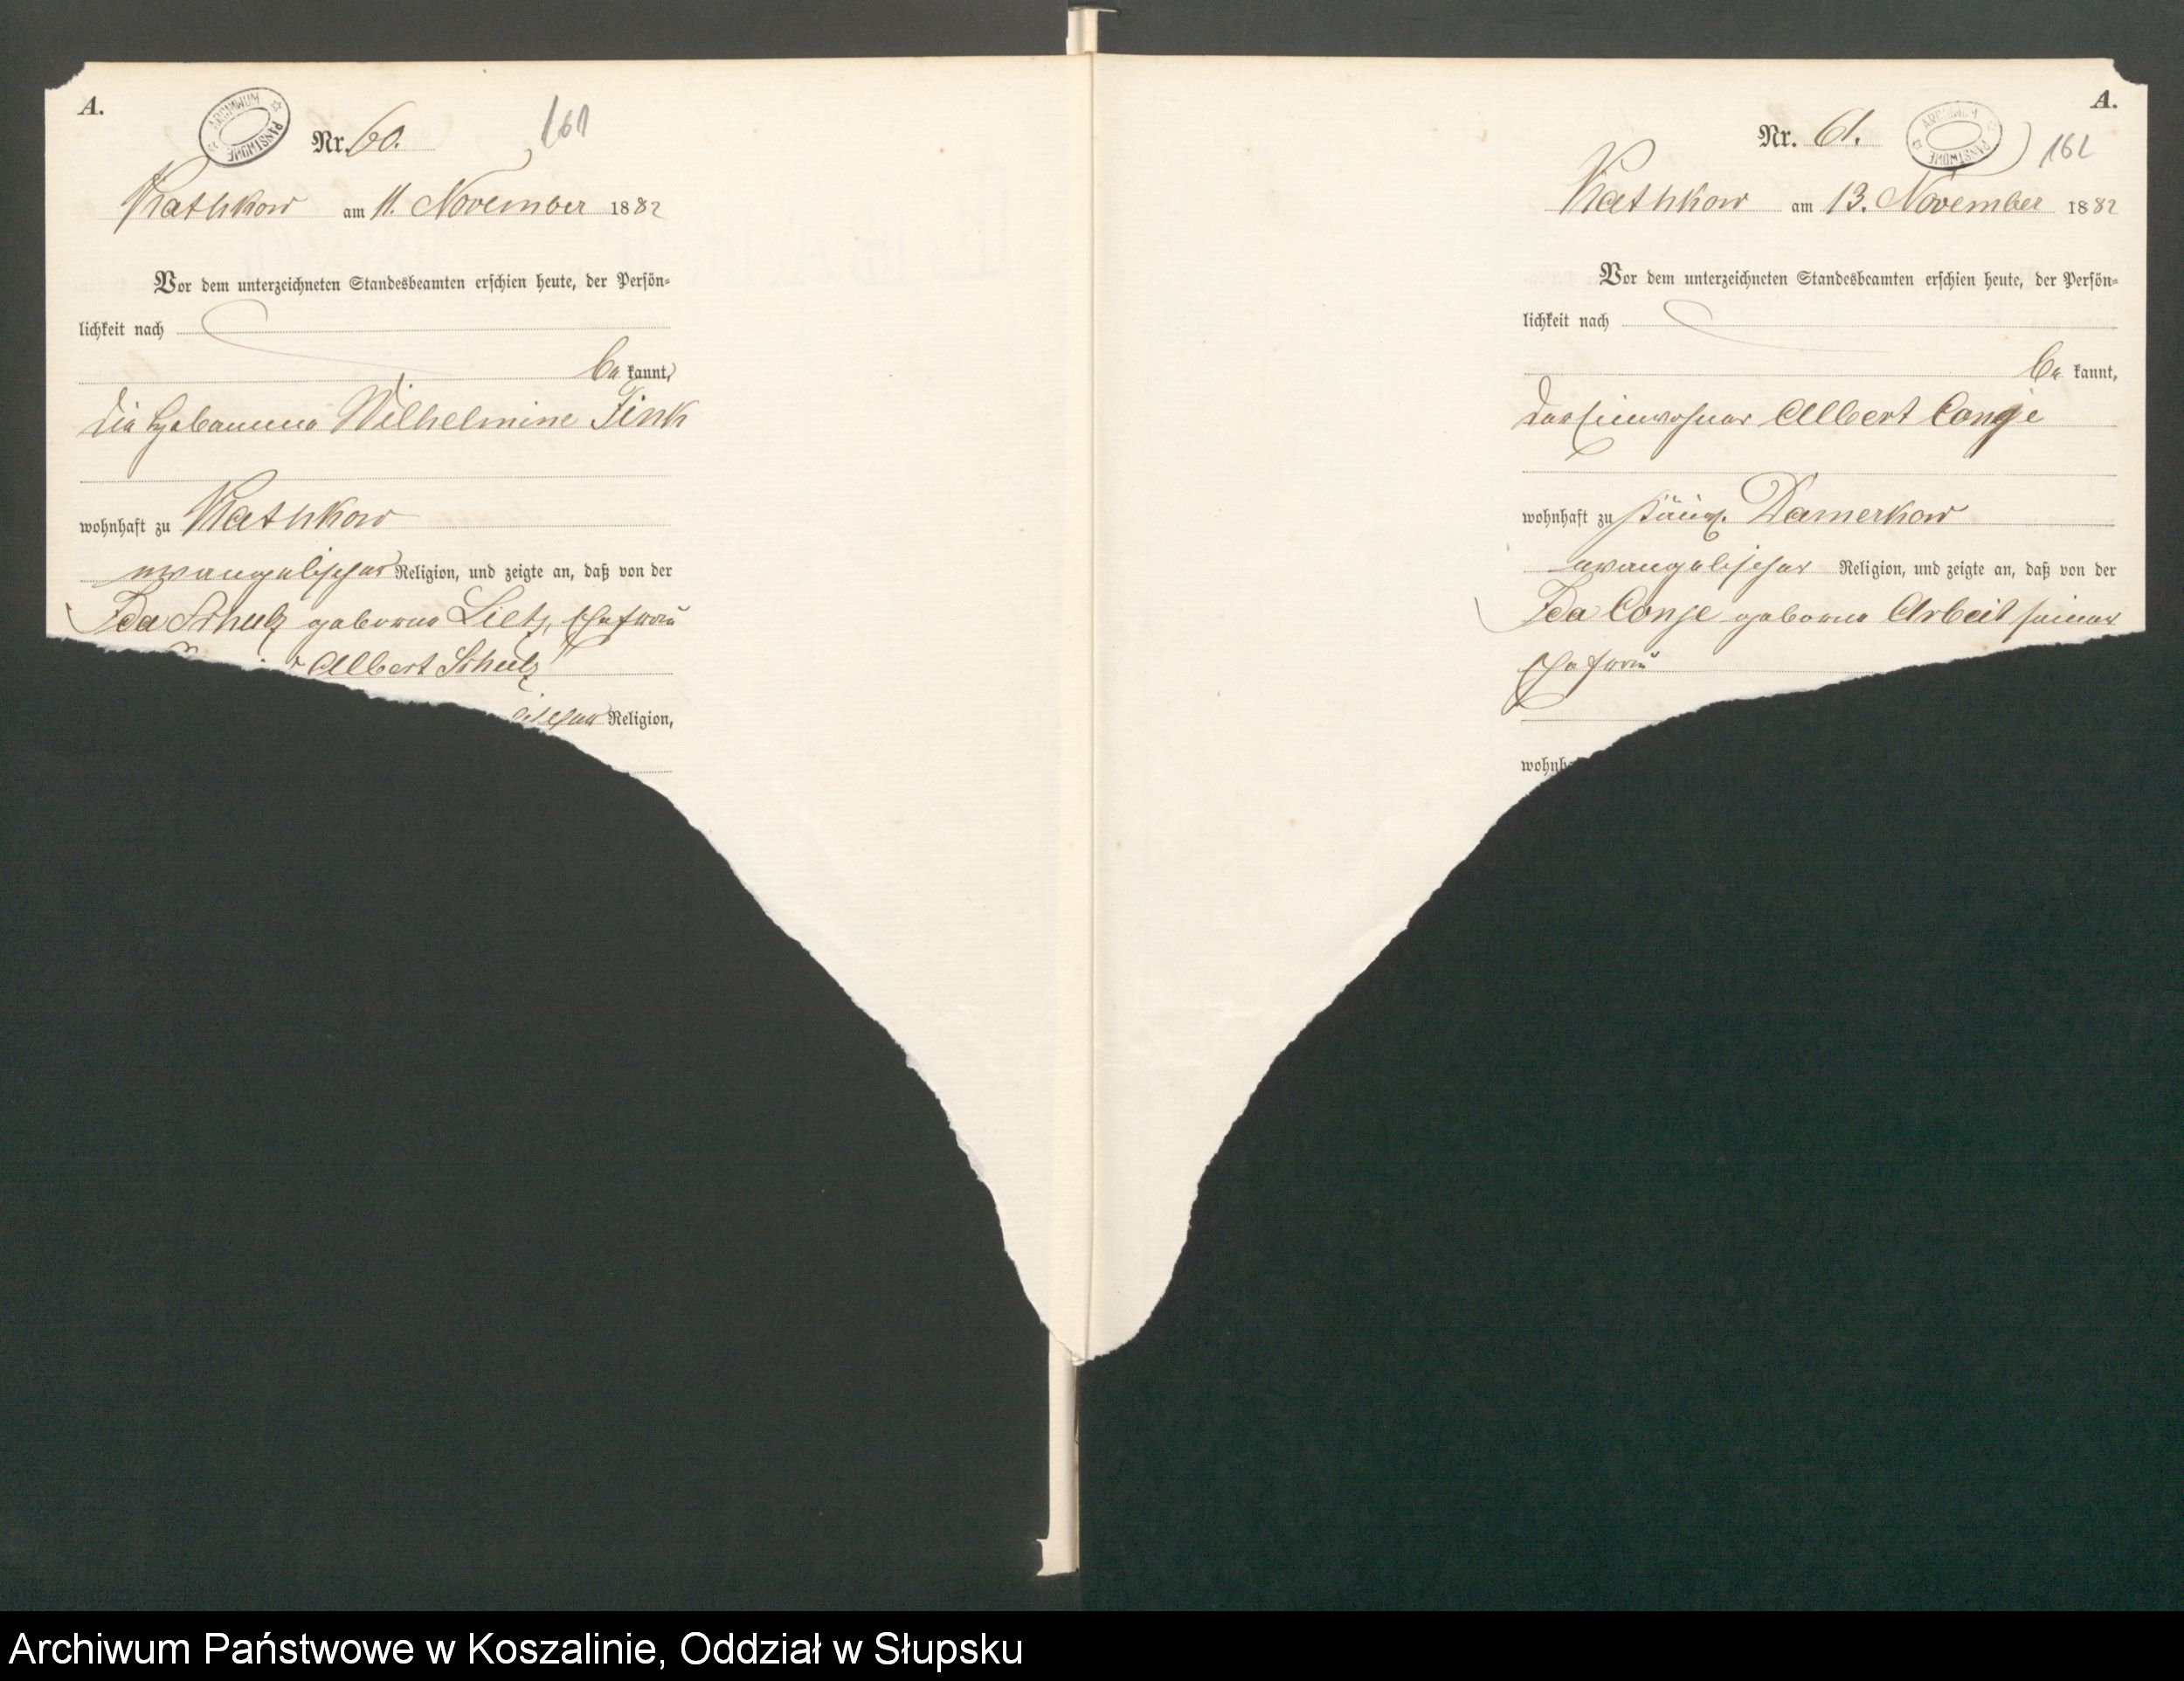 A.
ARCHIWUM PAŃSTWOWE
Nr. 60.
161
Rathkow am 11. November 1882
Vor dem unterzeichneten Standesbeamten erschien heute, der Persön-
lichkeit nach
be kannt,
die Hebamme Wilhelmine Fink
wohnhaft zu Rathkow
evangelischer Religion, und zeigte an, daß von der
Ida Schulz geborne Lietz, Ehefrau
Albert Schulz
ischer Religion,
A.
Nr. 61.
ARCHIWUM PAŃSTWOWE
162
Rathkow am 13. November 1882
Vor dem unterzeichneten Standesbeamten erschien heute, der Persön-
lichkeit nach
be kannt,
der Einwohner Albert Conje
wohnhaft zu Damerkow
evangelischer Religion, und zeigte an, daß von der
Ida Conje geborne Arbeit seiner
Ehefrau
wohnh
Archiwum Państwowe w Koszalinie, Oddział w Słupsku